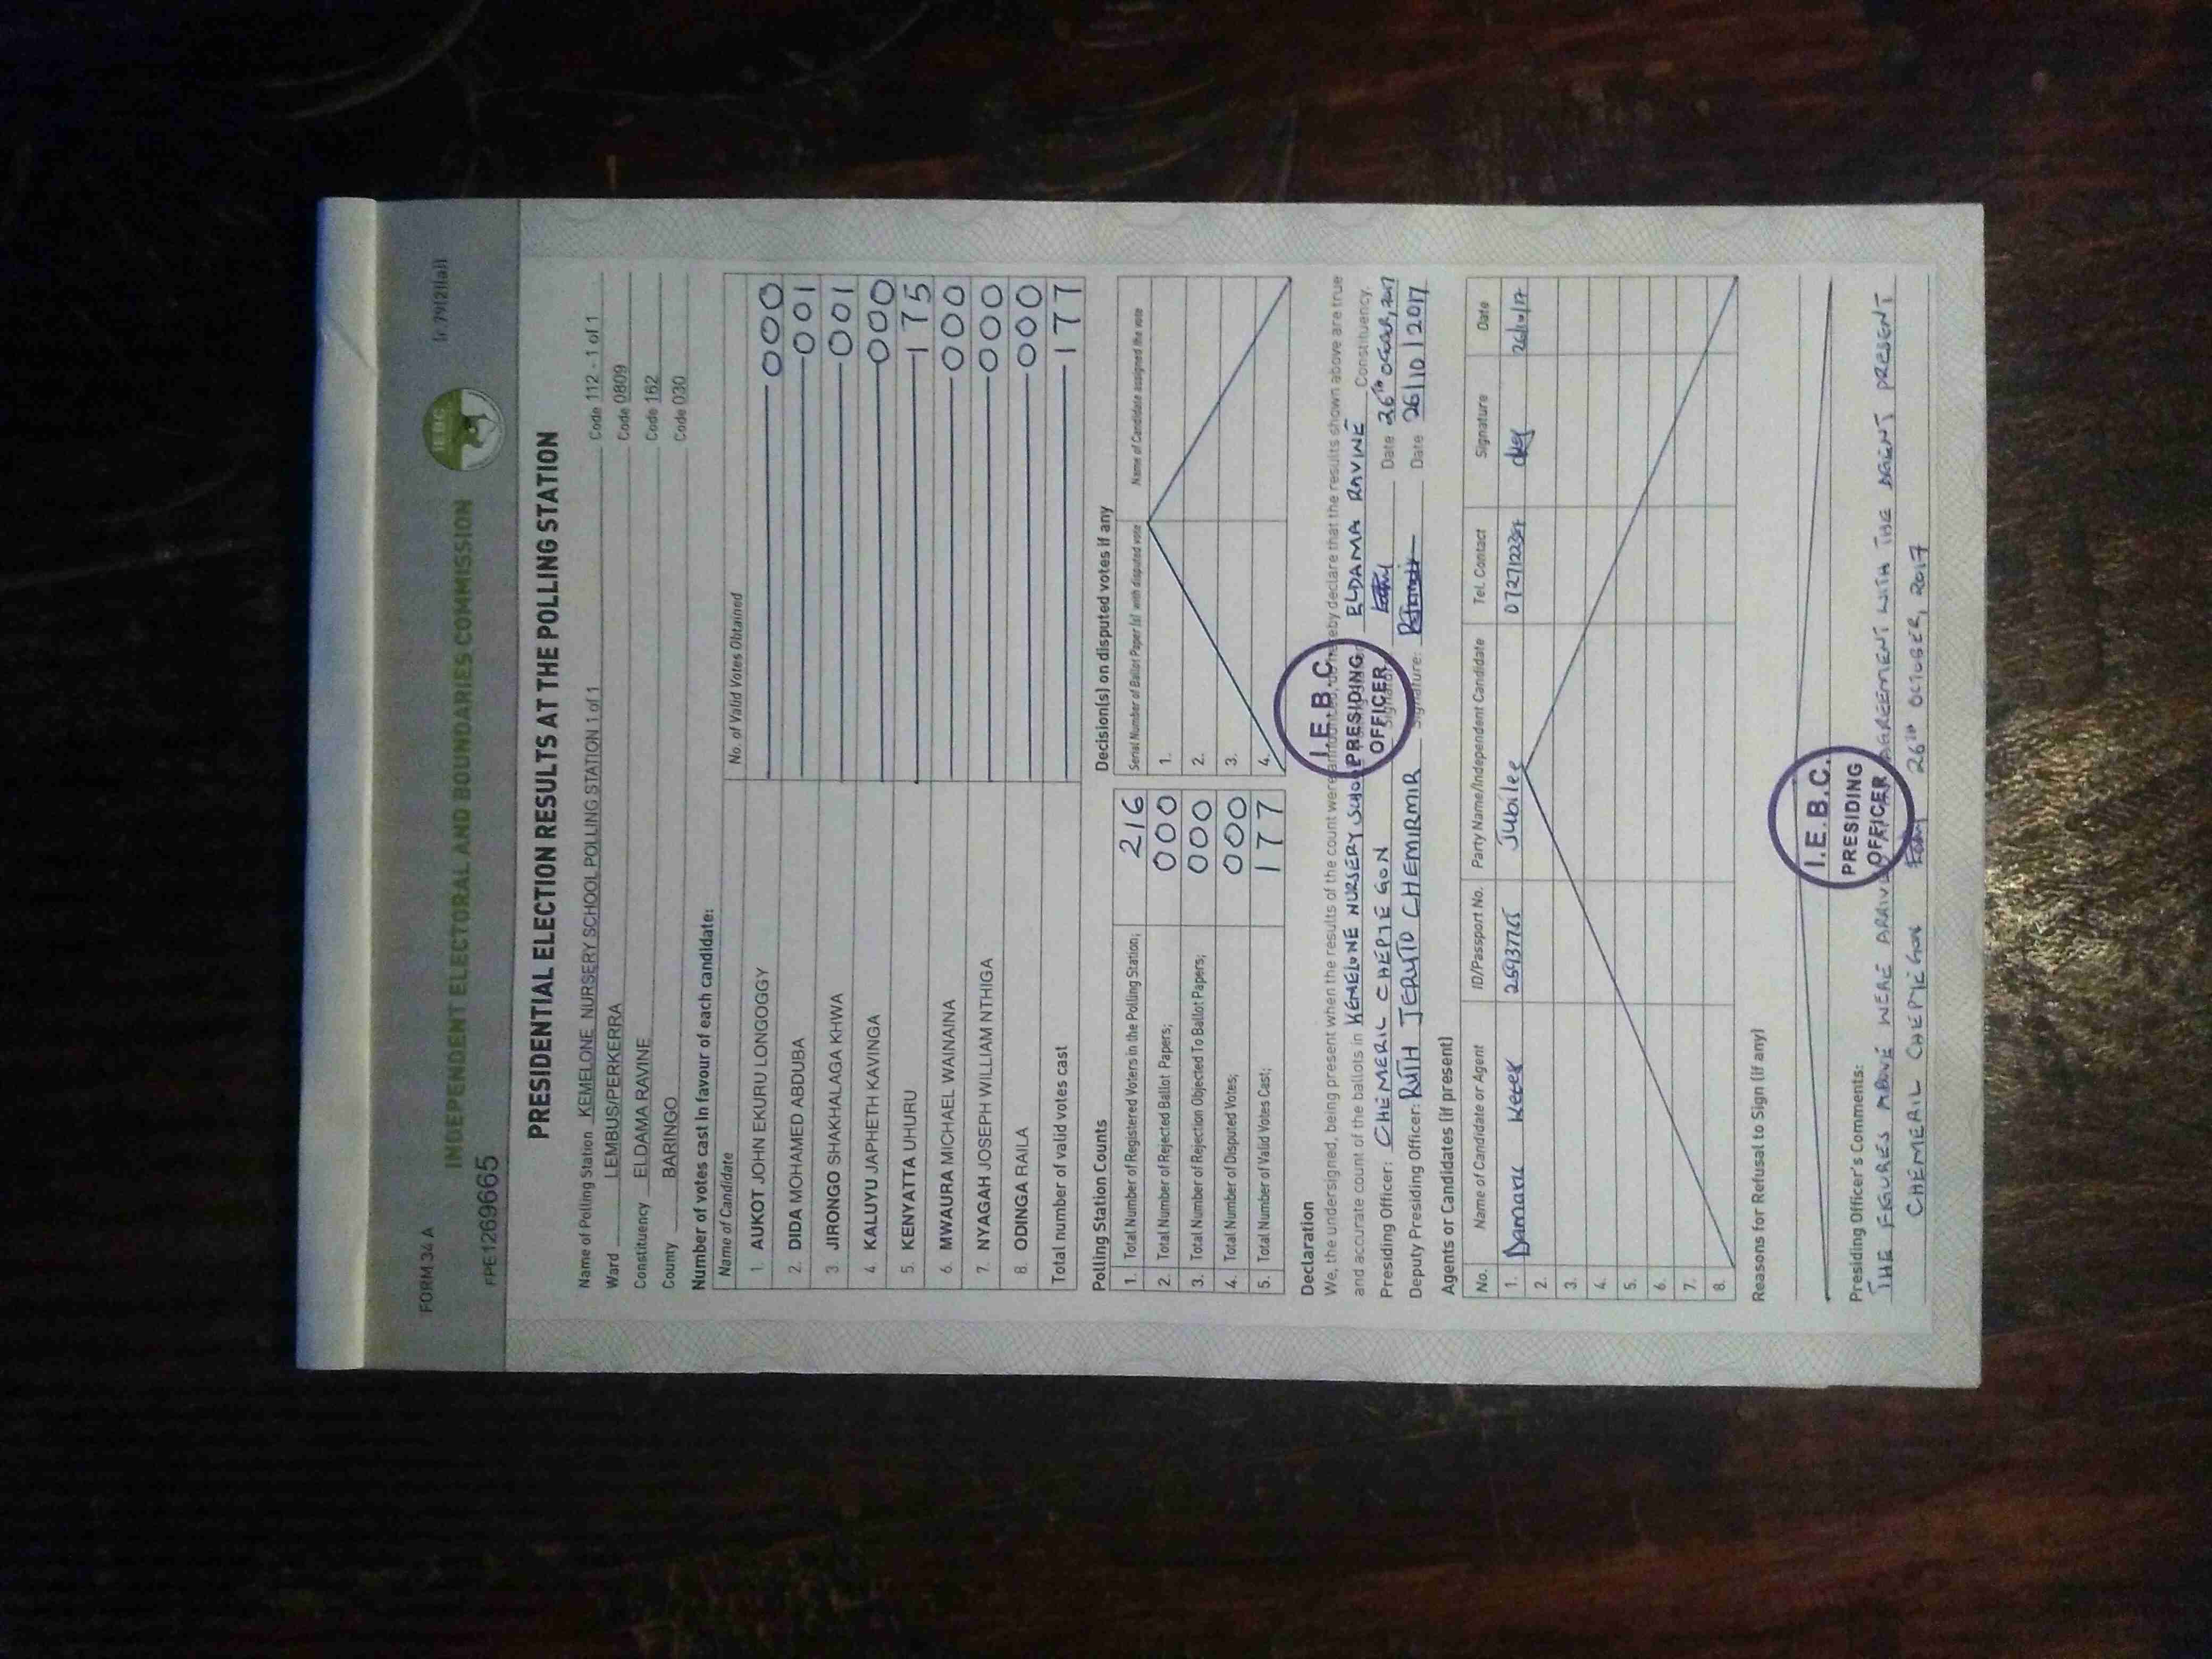 FORM 34 A
(r 79(2)(a))
INDEPENDENT ELECTORAL AND BOUNDARIES COMMISSION
IEBC
FPE1269665
PRESIDENTIAL ELECTION RESULTS AT THE POLLING STATION
Name of Polling Station KEMELONE NURSERY SCHOOL POLLING STATION 1 of 1 Code 112 - 1 of 1
Ward LEMBUS/PERKERRA Code 0809
Constituency ELDAMA RAVINE Code 162
County BARINGO Code 030
Number of votes cast in favour of each candidate:
Name of Candidate No. of Valid Votes Obtained
1. AUKOT JOHN EKURU LONGOGGY 000
2. DIDA MOHAMED ABDUBA 001
3. JIRONGO SHAKHALAGA KHWA 001
4. KALUYU JAPHETH KAVINGA 000
5. KENYATTA UHURU 175
6. MWAURA MICHAEL WAINAINA 000
7. NYAGAH JOSEPH WILLIAM NTHIGA 000
8. ODINGA RAILA 000
Total number of valid votes cast 177
Polling Station Counts
1. Total Number of Registered Voters in the Polling Station; 216
2. Total Number of Rejected Ballot Papers; 000
3. Total Number of Rejection Objected To Ballot Papers; 000
4. Total Number of Disputed Votes; 000
5. Total Number of Valid Votes Cast; 177
Decision(s) on disputed votes if any
Serial Number of Ballot Paper (s) with disputed vote Name of Candidate assigned the vote
1.
2.
3.
4.
Declaration
We, the undersigned, being present when the results of the count were announced, do hereby declare that the results shown above are true
and accurate count of the ballots in KEMELONE NURSERY SCHOOL ELDAMA RAVINE Constituency.
Presiding Officer: CHEMERIL CHEPIEGON Signature: Date 26TH OCTOBER, 2017
Deputy Presiding Officer: RUTH JERUTO CHEMIRMIR Signature: Date 26/10/2017
I.E.B.C.
PRESIDING
OFFICER
Agents or Candidates (if present)
No. Name of Candidate or Agent ID/Passport No. Party Name/Independent Candidate Tel. Contact Signature Date
1. Damaris Keter Jubilee 26/10/17
2.
3.
4.
5.
6.
7.
8.
Reasons for Refusal to Sign (if any)
I.E.B.C.
PRESIDING
OFFICER
Presiding Officer's Comments:
THE FIGURES ABOVE WERE ARRIVED AGREEMENT WITH THE AGENT PRESENT
CHEMERIL CHEPIEGON 26TH OCTOBER, 2017